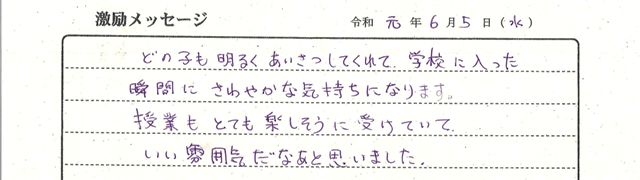 激励メッセージ 令和 元 年 6 月 5 日 (水)
どの子も明るくあいさつしてくれて、学校に入った
瞬間に さわやかな気持ちになります。
授業も とても楽しそうに受けていて、
いい雰囲気だなあと思いました。